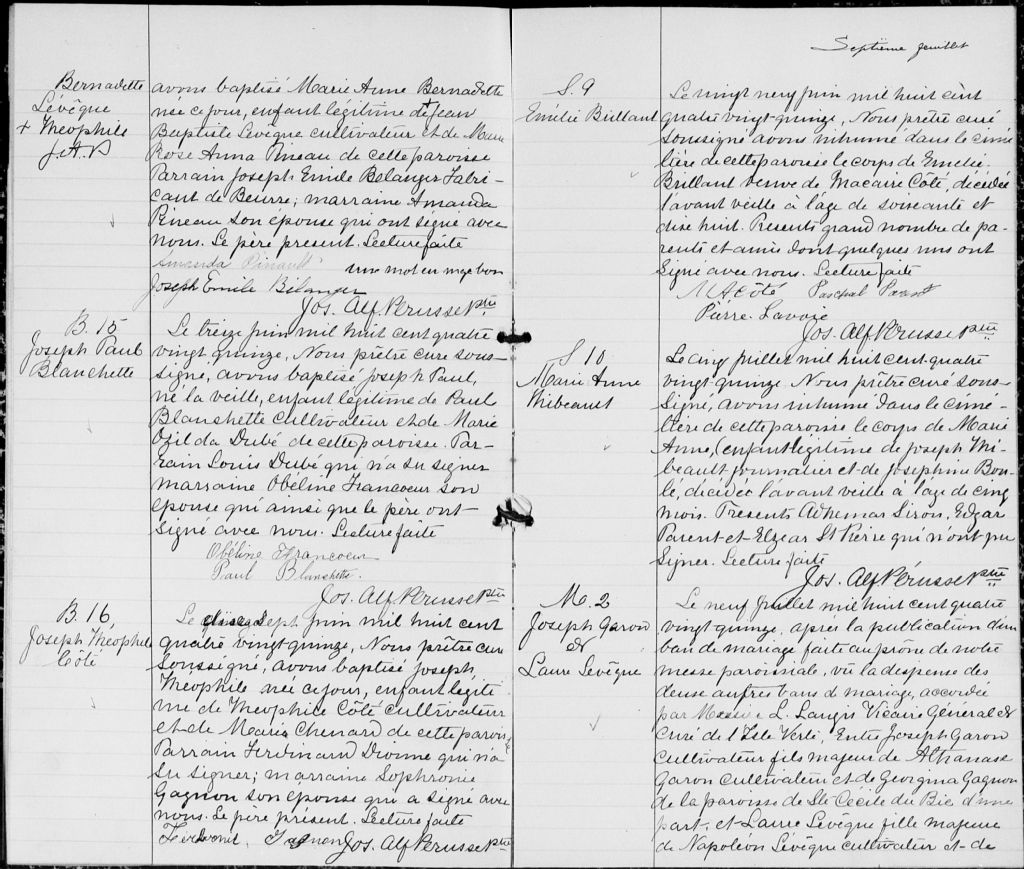 Septième feuillet
Bernadette
Lévêque
+ Théophile
J.A.P.
avons baptisé Marie Anne Bernadette
née ce jour, enfant légitime de + Jean
Baptiste Lévêque cultivateur et de Marie
Rose Anna Pineau de cette paroisse
Parrain Joseph Emile Bélanger Fabri-
cant de Beurre; marraine Amanda
Pineau son épouse qui ont signé avec
nous. Le père present. Lecture faite
Amanda Pinault
un mot en marge bon
Joseph Emile Bélanger
Jos. Alf. Pérusse Ptre
B. 15
Joseph Paul
Blanchette
Le treize juin mil huit cent quatre
vingt quinze, Nous prêtre curé sous-
signé, avons baptisé Joseph Paul,
né la veille, enfant légitime de Paul
Blanchette cultivateur et de Marie
Ozilda Dubé de cette paroisse. Par-
rain Louis Dubé qui n'a su signer
marraine Obéline Francoeur son
épouse qui ainsi que le père ont
signé avec nous. Lecture faite
Obéline Francoeur
Paul Blanchette.
Jos. Alf. Pérusse Ptre
B. 16
Joseph Théophile
Côté
Le dix sept juin mil huit cent
quatre vingt quinze, Nous prêtre curé
soussigné, avons baptisé Joseph,
Théophile née ce jour, enfant légiti
me de Théophile Côté cultivateur
et de Marie Chenard de cette paroisse
Parrain Ferdinand Dionne qui n'a
su signer; marraine Sophronie
Gagnon son épouse qui a signé avec
nous. Le père présent. Lecture faite
Gagnon Jos. Alf. Pérusse Ptre
S. 9
Emélie Brillant
Le vingt neuf juin mil huit cent
quatre vingt-quinze, Nous prêtre curé
soussigné avons inhumé dans le cime
tière de cette paroisse le corps de Emélie
Brillant veuve de Macaire Côté, décédée
l'avant veille à l'âge de soixante et
dix huit. Presents grand nombre de pa-
rents et amis dont quelques uns ont
signé avec nous. Lecture faite
M A Côté Paschal Parent
Pierre Lavoie
Jos. Alf. Pérusse Ptre
S 10
Marie Anne
Thibeault
Le cinq juillet mil huit cent quatre
vingt-quinze Nous prêtre curé sous-
signé, avons inhumé dans le cime-
tière de cette paroisse le corps de Marie
Anne, enfant légitime de Joseph Thi-
beault journalier et de Joséphine Bou-
lé, décédée l'avant veille à l'âge de cinq
mois. Presents Adhemar Siron, Edgar
Parent et Elzear St Pierre qui n'ont pu
signer. Lecture faite
Jos. Alf. Pérusse Ptre
M. 2
Joseph Garon
&
Laure Lévêque
Le neuf juillet mil huit cent quatre
vingt-quinze, après la publication d'un
ban de mariage faite au prone de notre
messe paroissiale, vu la dispense des
deux autres bans de mariage, accordée
par Messire L. Langis Vicaire Général &
Curé de l'Isle Verte, Entre Joseph Garon
cultivateur fils majeur de Athanase
Garon cultivateur et de Georgina Gagnon
de la paroisse de Ste Cécile du Bic d'une
part, et Laure Lévêque fille majeure
de Napoléon Lévêque cultivateur et de